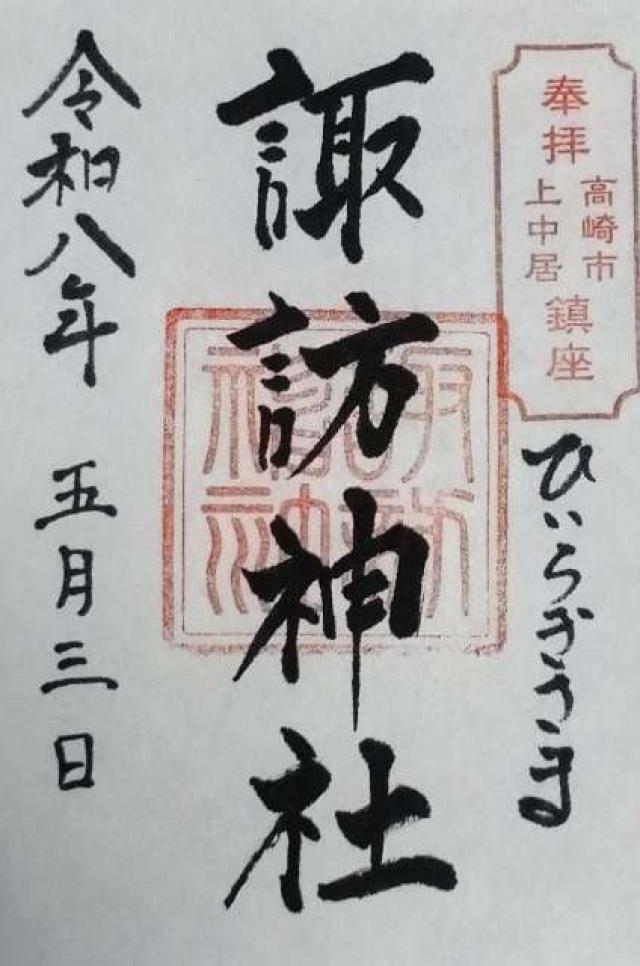 奉拝
高崎市
上中居
鎮座
ひいらぎさま
諏訪神社
令和八年 五月三日